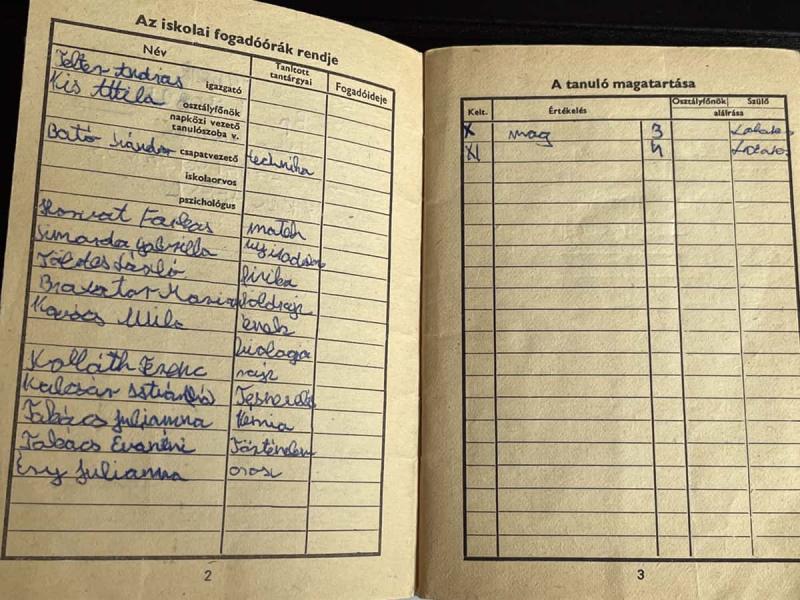 Az iskolai fogadóórák rendje
Név Tanított tantárgyai Fogadóideje
András igazgató
Kis Attila osztályfőnök
napközi vezető
tanulószoba v.
Bató Sándor csapatvezető technika
iskolaorvos
pszichológus
Horvat Farkas matek
Gabriella
Földes László fizika
Maria földrajz
Kovács ének
biologia
Kolláth Ferenc rajz
Kalcsár
Takács Julianna Kémia
Takács Történelem
Éry Julianna orosz
2
A tanuló magatartása
Kelt. Értékelés Osztályfőnök Szülő
aláírása
X mag 3 Lakatos
XI 4 Lakatos
3